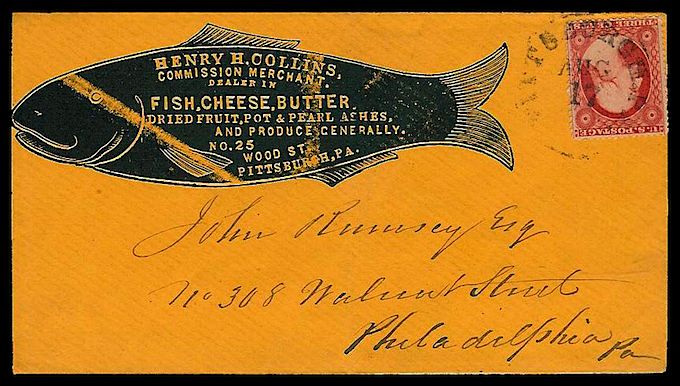 HENRY H. COLLINS,
COMMISSION MERCHANT.
DEALER IN
FISH, CHEESE, BUTTER.
DRIED FRUIT, POT & PEARL ASHES,
AND PRODUCE GENERALLY.
NO. 25
WOOD ST.
PITTSBURGH, PA.
PITTSBURGH
AUG
U.S. POSTAGE
THREE CENTS
John Rumsey Esq
No 308 Walnut Street
Philadelphia Pa